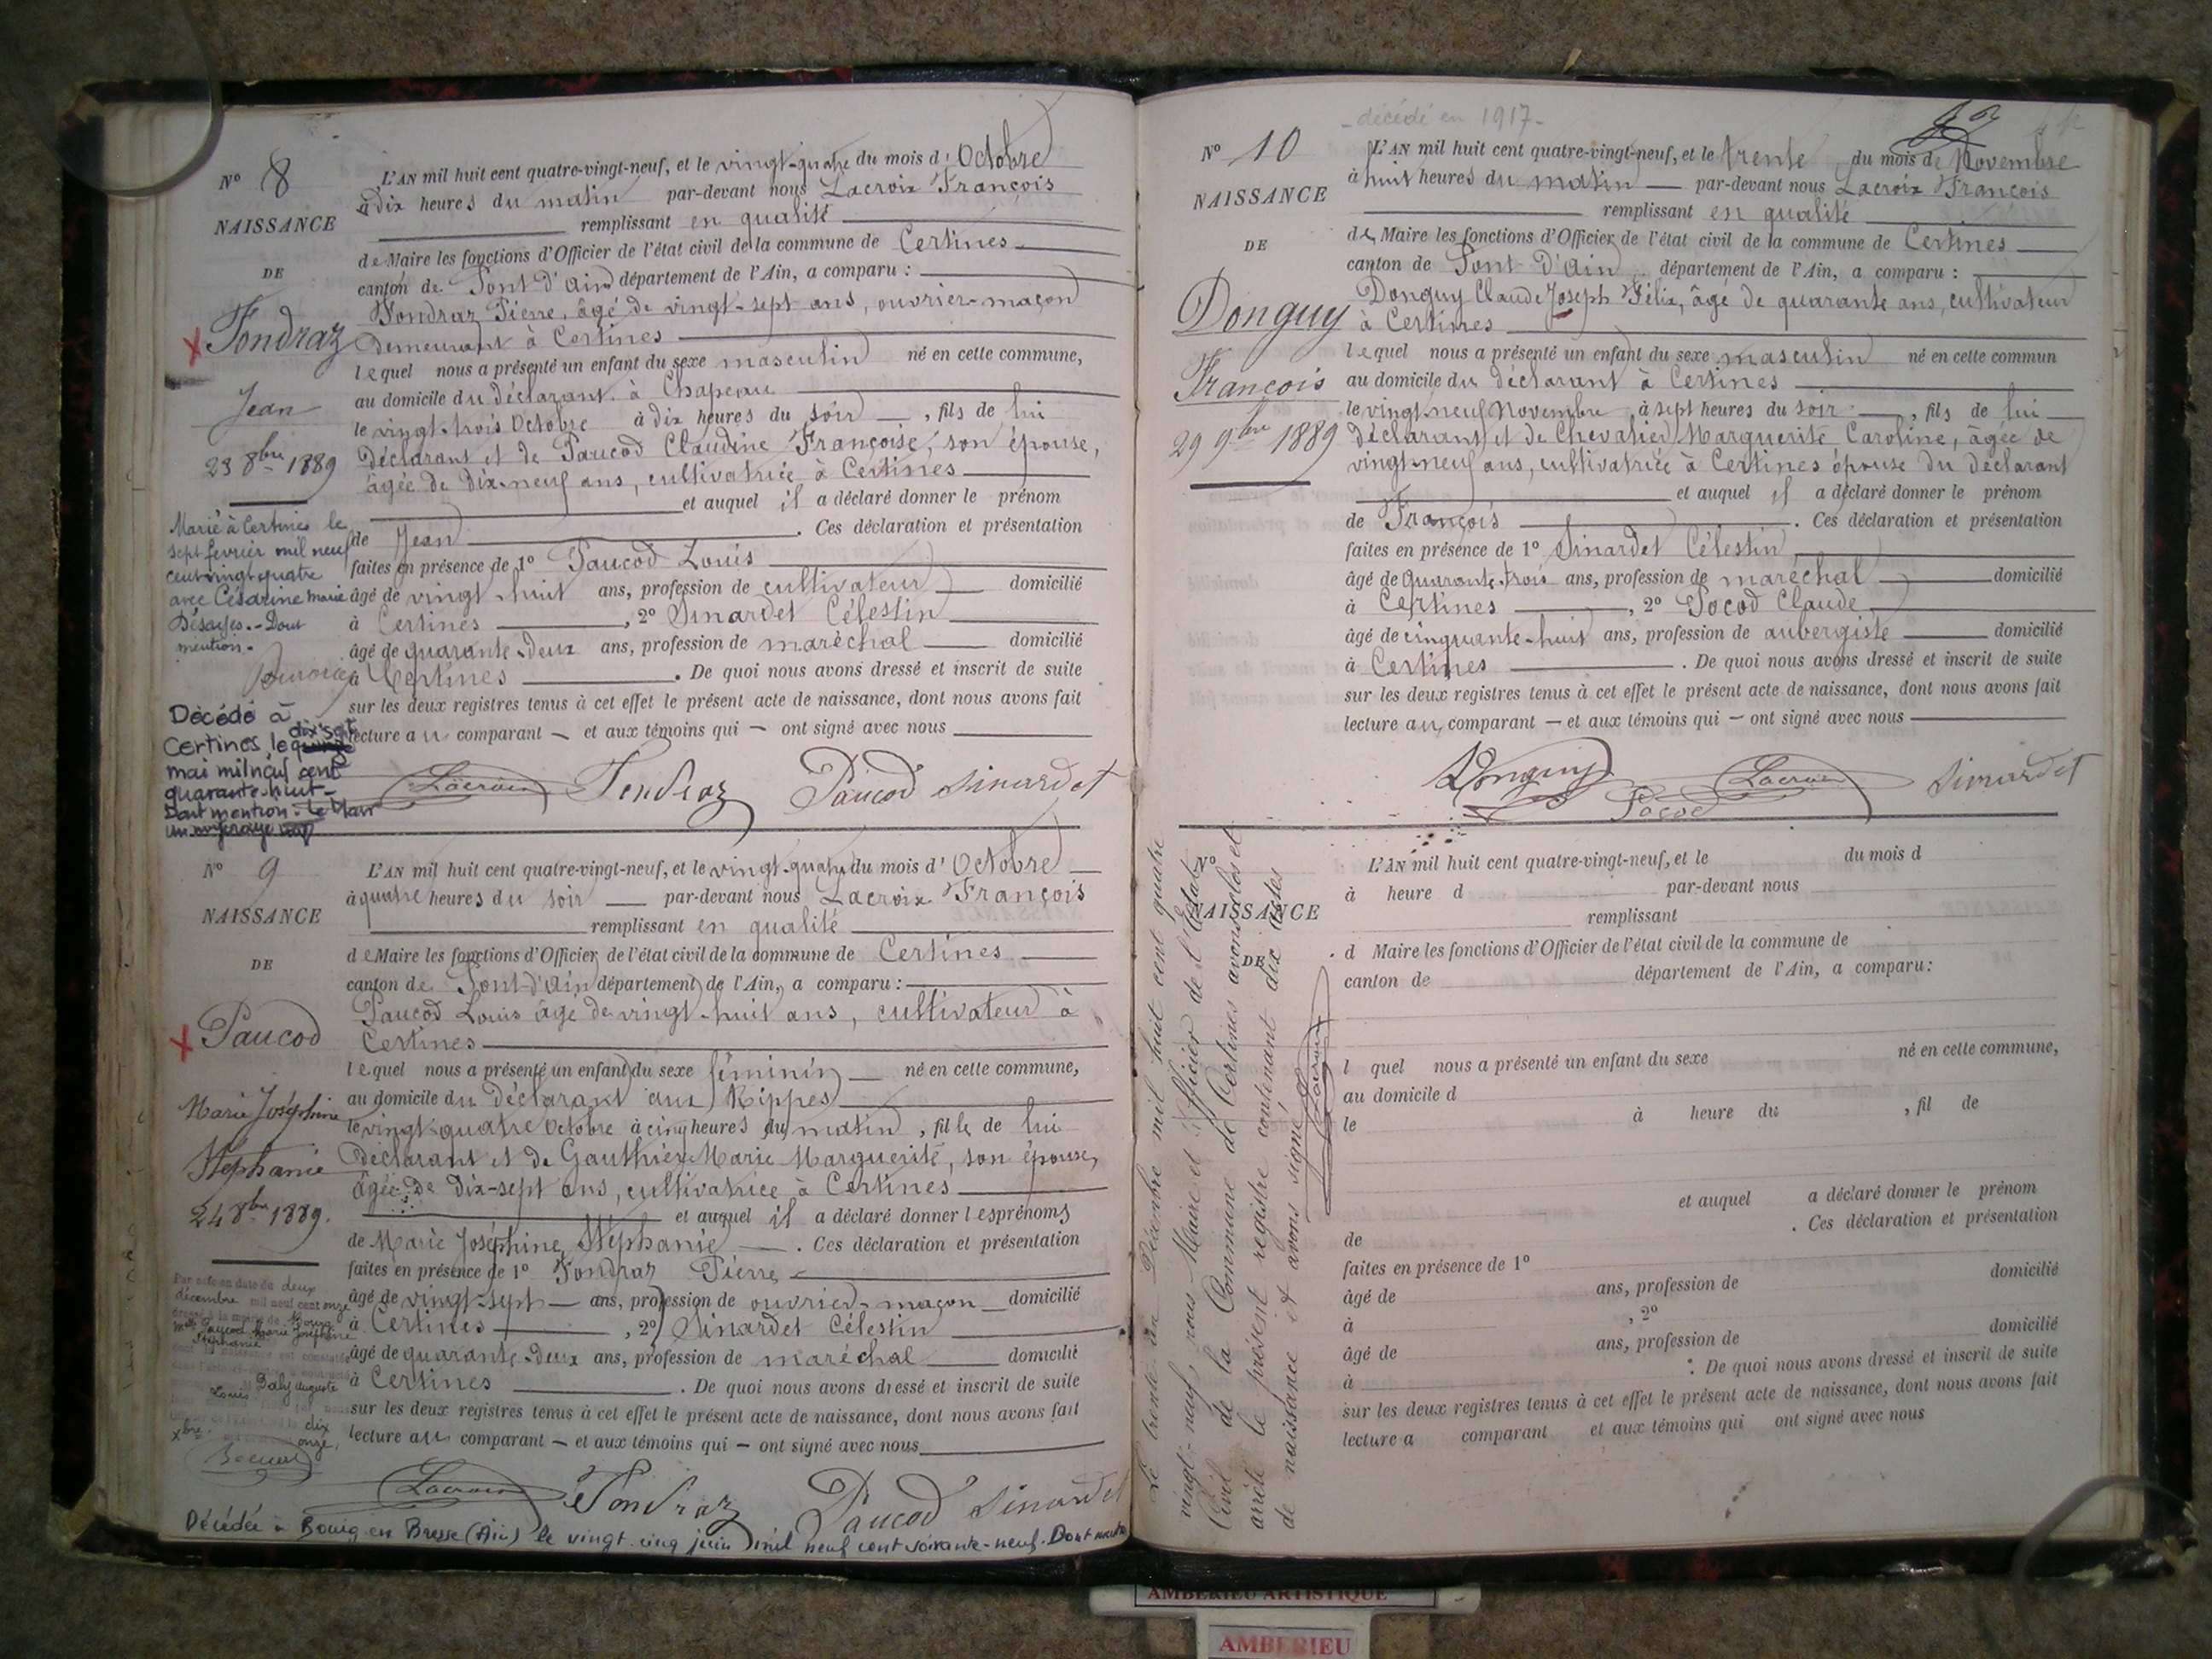 N° 8
NAISSANCE
DE
Fondraz
Jean
23 8bre 1889
Marié à Certines le
sept février mil neuf
cent vingt quatre
avec Césarine Marie
Désayes.- Dont
mention.
Décédé à
Certines, le dix sept
mai mil neuf cent
quarante-huit-
Dont mention: Le Maire
L'AN mil huit cent quatre-vingt-neuf, et le vingt-quatre du mois d'Octobre
à dix heures du matin par-devant nous Lacroix François
remplissant en qualité
de Maire les fonctions d'Officier de l'état civil de la commune de Certines
canton de Pont-d'Ain département de l'Ain, a comparu :
Fondraz Pierre, âgé de vingt-sept ans, ouvrier-maçon
demeurant à Certines
lequel nous a présenté un enfant du sexe masculin né en cette commune,
au domicile du déclarant à Chapeau
le vingt-trois Octobre à dix heures du soir, fils de lui
déclarant et de Paucod Claudine Françoise, son épouse,
âgée de dix-neuf ans, cultivatrice à Certines
et auquel il a déclaré donner le prénom
de Jean. Ces déclaration et présentation
faites en présence de 1° Paucod Louis
âgé de vingt-huit ans, profession de cultivateur domicilié
à Certines, 2° Sinardet Célestin
âgé de quarante-deux ans, profession de maréchal domicilié
à Certines. De quoi nous avons dressé et inscrit de suite
sur les deux registres tenus à cet effet le présent acte de naissance, dont nous avons fait
lecture au comparant — et aux témoins qui — ont signé avec nous
Lacroix Fondraz Paucod Sinardet
N° 9
NAISSANCE
DE
Paucod
Marie Joséphine
Stéphanie
24 8bre 1889.
Par acte en date du deux
décembre mil neuf cent onze
dressé à la mairie de Bourg
Melle Paucod Marie Joséphine
Stéphanie
Louis Baly Auguste
xbre. dix
onze,
L'AN mil huit cent quatre-vingt-neuf, et le vingt-quatre du mois d'Octobre
à quatre heures du soir — par-devant nous Lacroix François
remplissant en qualité
de Maire les fonctions d'Officier de l'état civil de la commune de Certines
canton de Pont-d'Ain département de l'Ain, a comparu :
Paucod Louis âgé de vingt-huit ans, cultivateur à
Certines
lequel nous a présenté un enfant du sexe féminin — né en cette commune,
au domicile du déclarant aux Rippes
le vingt-quatre Octobre à cinq heures du matin, fille de lui
déclarant et de Gauthier Marie Marguerite, son épouse,
âgée de dix-sept ans, cultivatrice à Certines
et auquel il a déclaré donner les prénoms
de Marie Joséphine Stéphanie. Ces déclaration et présentation
faites en présence de 1° Fondraz Pierre
âgé de vingt-sept ans, profession de ouvrier-maçon domicilié
à Certines, 2° Sinardet Célestin
âgé de quarante-deux ans, profession de maréchal domicilié
à Certines. De quoi nous avons dressé et inscrit de suite
sur les deux registres tenus à cet effet le présent acte de naissance, dont nous avons fait
lecture au comparant — et aux témoins qui — ont signé avec nous
Lacroix Fondraz Paucod Sinardet
Décédée à Bourg en Bresse (Ain) le vingt-cinq juin mil neuf cent soixante-neuf. Dont mention
- décédé en 1917 -
N° 10
NAISSANCE
DE
Donguy
François
29 9bre 1889
L'AN mil huit cent quatre-vingt-neuf, et le trente du mois de Novembre
à huit heures du matin — par-devant nous Lacroix François
remplissant en qualité
de Maire les fonctions d'Officier de l'état civil de la commune de Certines
canton de Pont-d'Ain département de l'Ain, a comparu :
Donguy Claude Joseph Félix, âgé de quarante ans, cultivateur
à Certines
lequel nous a présenté un enfant du sexe masculin né en cette commun
au domicile du déclarant à Certines
le vingt-neuf Novembre, à sept heures du soir, fils de lui
déclarant et de Chevalier Marguerite Caroline, âgée de
vingt-neuf ans, cultivatrice à Certines épouse du déclarant
et auquel il a déclaré donner le prénom
de François. Ces déclaration et présentation
faites en présence de 1° Sinardet Célestin
âgé de quarante-trois ans, profession de maréchal domicilié
à Certines, 2° Pocod Claude
âgé de cinquante-huit ans, profession de aubergiste domicilié
à Certines. De quoi nous avons dressé et inscrit de suite
sur les deux registres tenus à cet effet le présent acte de naissance, dont nous avons fait
lecture au comparant — et aux témoins qui — ont signé avec nous
Donguy Pocod Lacroix Sinardet
N°
NAISSANCE
DE
L'AN mil huit cent quatre-vingt-neuf, et le du mois d
à heure d par-devant nous
remplissant
d Maire les fonctions d'Officier de l'état civil de la commune de
canton de département de l'Ain, a comparu:
l quel nous a présenté un enfant du sexe né en cette commune,
au domicile d
le à heure du , fil de
et auquel a déclaré donner le prénom
de . Ces déclaration et présentation
faites en présence de 1°
âgé de ans, profession de domicilié
à , 2°
âgé de ans, profession de domicilié
à . De quoi nous avons dressé et inscrit de suite
sur les deux registres tenus à cet effet le présent acte de naissance, dont nous avons fait
lecture a comparant et aux témoins qui ont signé avec nous
Le trente un Décembre mil huit cent quatre
vingt-neuf, nous Maire et Officier de l'Etat
Civil de la Commune de Certines avons clos et
arrêté le présent registre contenant dix actes
de naissance et avons signé.
Lacroix
AMBERIEU ARTISTIQUE
AMBERIEU